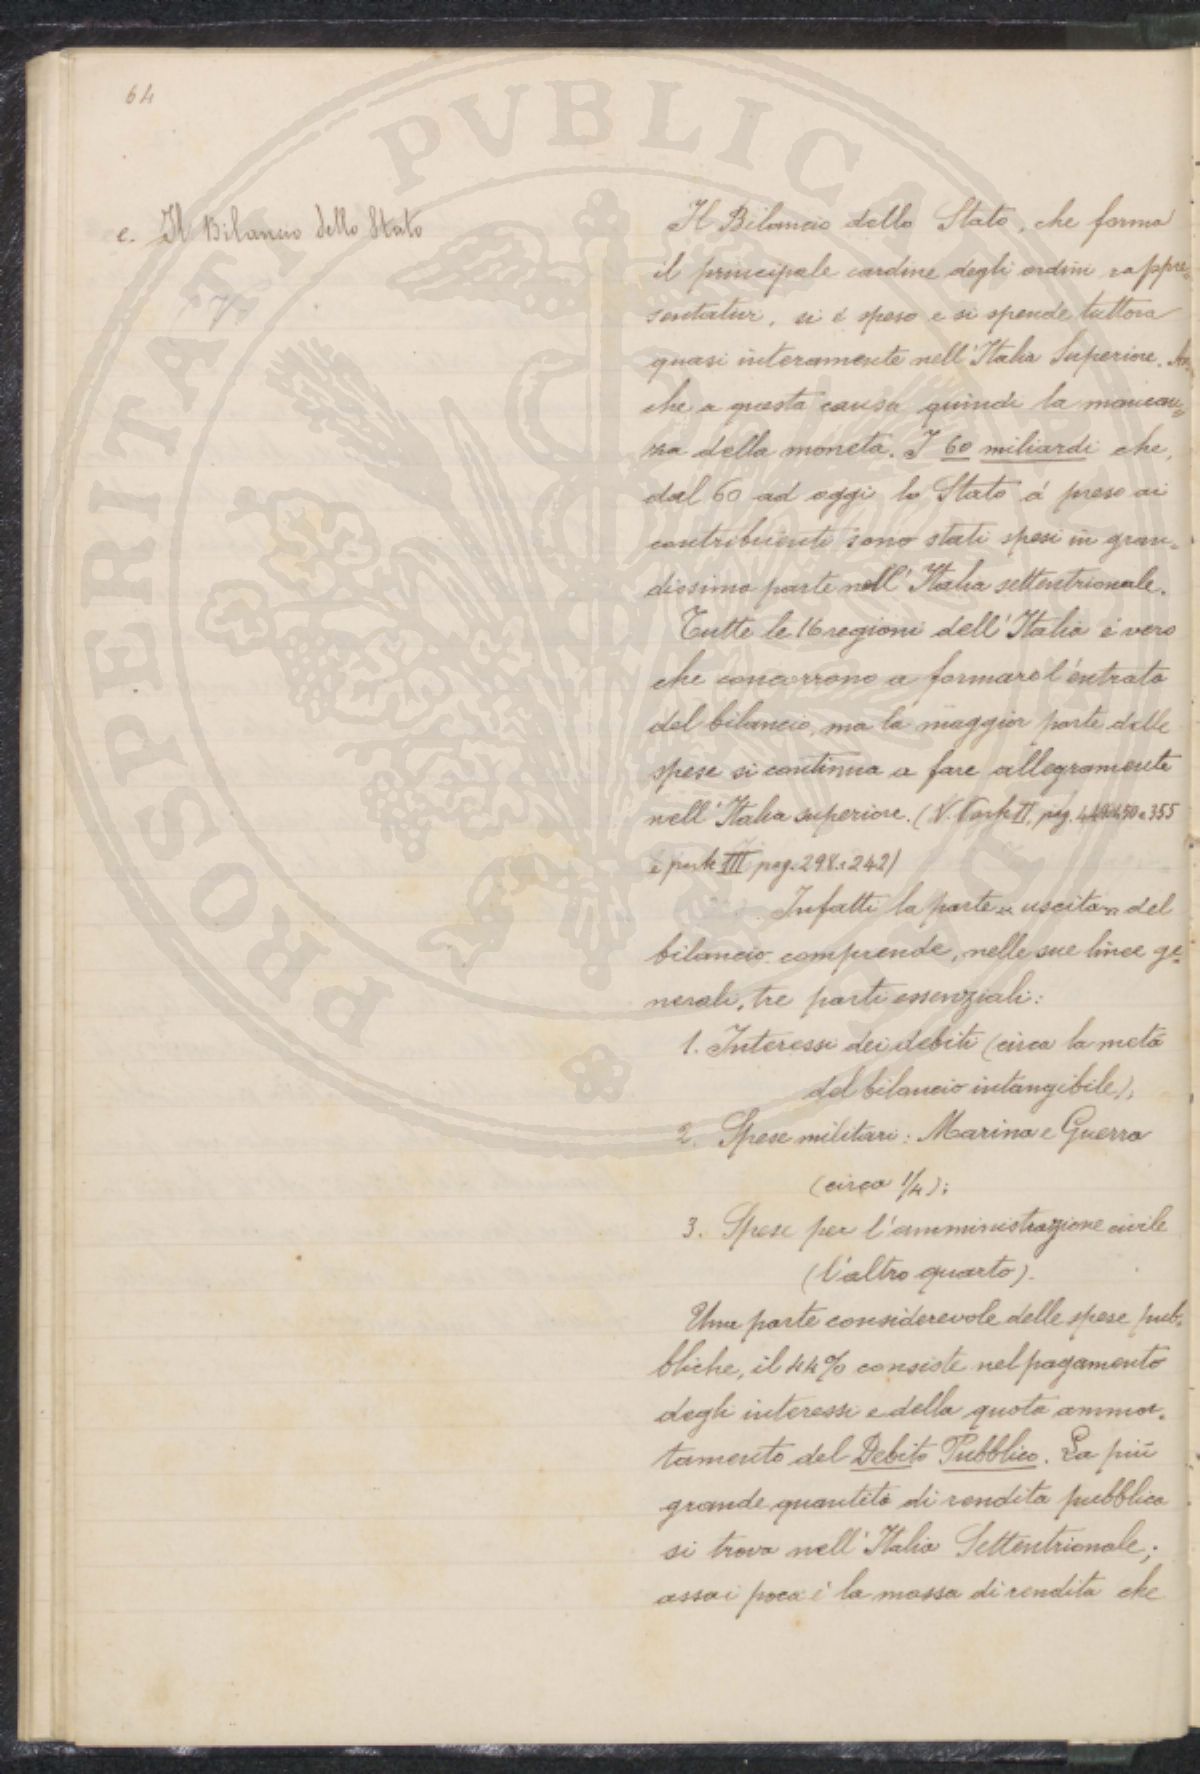 64
e. Il Bilancio dello Stato
Il Bilancio dello Stato, che forma
il principale cardine degli ordini rappre=
sentativi, si è speso e si spende tuttora
quasi interamente nell'Italia Superiore. An=
che a questa causa quindi la mancan=
za della moneta. I 60 miliardi che,
dal 60 ad oggi lo Stato à preso ai
contribuenti sono stati spesi in gran=
dissima parte nell'Italia settentrionale.
Tutte le 16 regioni dell'Italia è vero
che concorrono a formare l'entrata
del bilancio, ma la maggior parte delle
spese si continua a fare allegramente
nell'Italia superiore. (V. Parte II, pag. 449.450 e 355
e parte III pag. 298 e 242)
Infatti la parte "uscita" del
bilancio comprende, nelle sue linee ge=
nerali, tre parti essenziali:
1. Interessi dei debiti (circa la metà
del bilancio intangibile);
2. Spese militari: Marina e Guerra
(circa 1/4);
3. Spese per l'amministrazione civile
(l'altro quarto).
Una parte considerevole delle spese pub=
bliche, il 44% consiste nel pagamento
degli interessi e della quota ammor=
tamento del Debito Pubblico. La più
grande quantità di rendita pubblica
si trova nell'Italia Settentrionale;
assai poca è la massa di rendita che
PROSPERITATI PVBLICAE